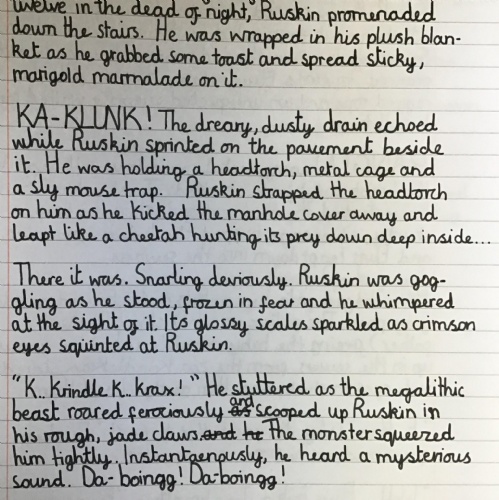 twelve in the dead of "night," Ruskin promenaded
down the stairs. He was wrapped in his plush blan-
ket as he grabbed some toast and spread sticky,
marigold marmalade on it.
KA-KLUNK! The dreary, dusty drain echoed
while Ruskin sprinted on the pavement beside
it. He was holding a headtorch, metal cage and
a sly mouse trap. Ruskin strapped the headtorch
on him as he kicked the manhole cover away and
leapt like a cheetah hunting its prey down deep inside...
There it was. Snarling deviously. Ruskin was gog-
gling as he stood, frozen in fear and he whimpered
at the sight of it. Its glossy scales sparkled as crimson
eyes squinted at Ruskin.
"K.. Krindle K.. Krax!" He stuttered as the megalithic
beast roared ferociously as and scooped up Ruskin in
his rough, jade claws. and he The monster squeezed
him tightly. Instantaenously, he heard a mysterious
sound. Da-boingg! Da-boingg!